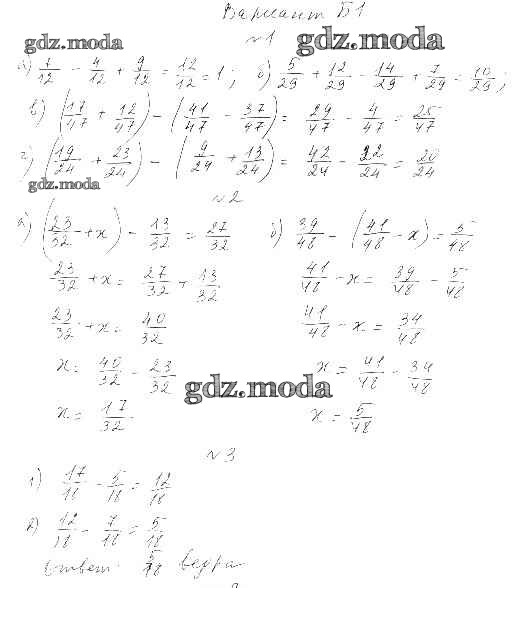 Вариант Б1
gdz.moda
№1
gdz.moda
а) 7/12 - 4/12 + 9/12 = 12/12 = 1; б) 5/29 + 12/29 - 14/29 + 7/29 = 10/29;
в) (17/47 + 12/47) - (41/47 - 37/47) = 29/47 - 4/47 = 25/47
г) (19/24 + 23/24) - (9/24 + 13/24) = 42/24 - 22/24 = 20/24
gdz.moda
№2
а) (23/32 + x) - 13/32 = 27/32
23/32 + x = 27/32 + 13/32
23/32 + x = 40/32
x = 40/32 - 23/32
x = 17/32
б) 39/48 - (41/48 - x) = 5/48
41/48 - x = 39/48 - 5/48
41/48 - x = 34/48
x = 41/48 - 34/48
gdz.moda
x = 5/48
№3
1) 17/18 - 5/18 = 12/18
2) 12/18 - 7/18 = 5/18
Ответ: 5/18 ведра